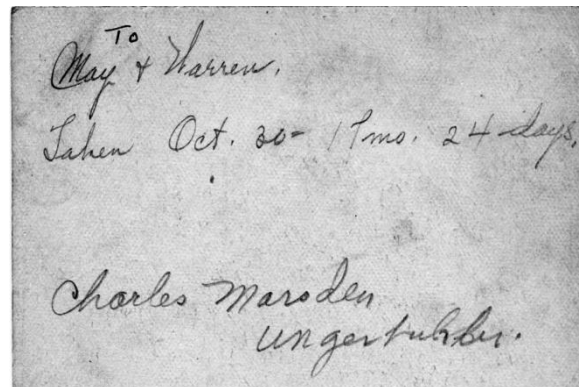 To
May & Warren.
Taken Oct. 30- 17mo. 24 days.
Charles Marsden
Ungerbuhler.